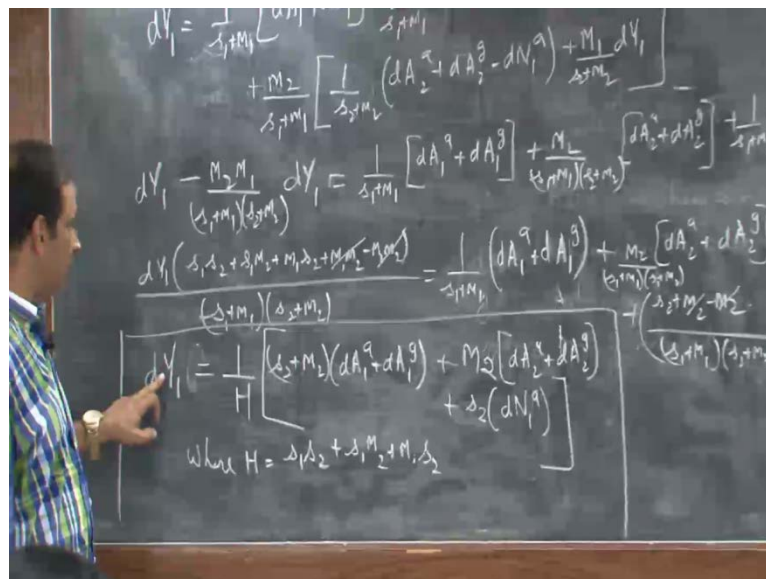 dY₁ = 1/(s₁+m₁) [
+ m₂/(s₁+m₁) [ 1/(s₂+m₂) (dA₂ᵃ + dA₂ᵍ - dN₁ᵃ) + m₁/(s₂+m₂) dY₁ ]
dY₁ - m₂m₁/((s₁+m₁)(s₂+m₂)) dY₁ = 1/(s₁+m₁) [dA₁ᵃ + dA₁ᵍ] + m₂/((s₁+m₁)(s₂+m₂)) [dA₂ᵃ + dA₂ᵍ] +
dY₁(s₁s₂ + s₁m₂ + m₁s₂ + m₁m₂ - m₁m₂)/((s₁+m₁)(s₂+m₂)) = 1/(s₁+m₁) (dA₁ᵃ + dA₁ᵍ) + m₂/((s₁+m₁)(s₂+m₂)) [dA₂ᵃ + dA₂ᵍ]
+ (s₂ + m₂ - m₂
dY₁ = 1/H [ (s₂+m₂)(dA₁ᵃ + dA₁ᵍ) + m₂ [dA₂ᵃ + dA₂ᵍ]
+ s₂(dN₁ᵃ) ]
where H = s₁s₂ + s₁m₂ + m₁s₂